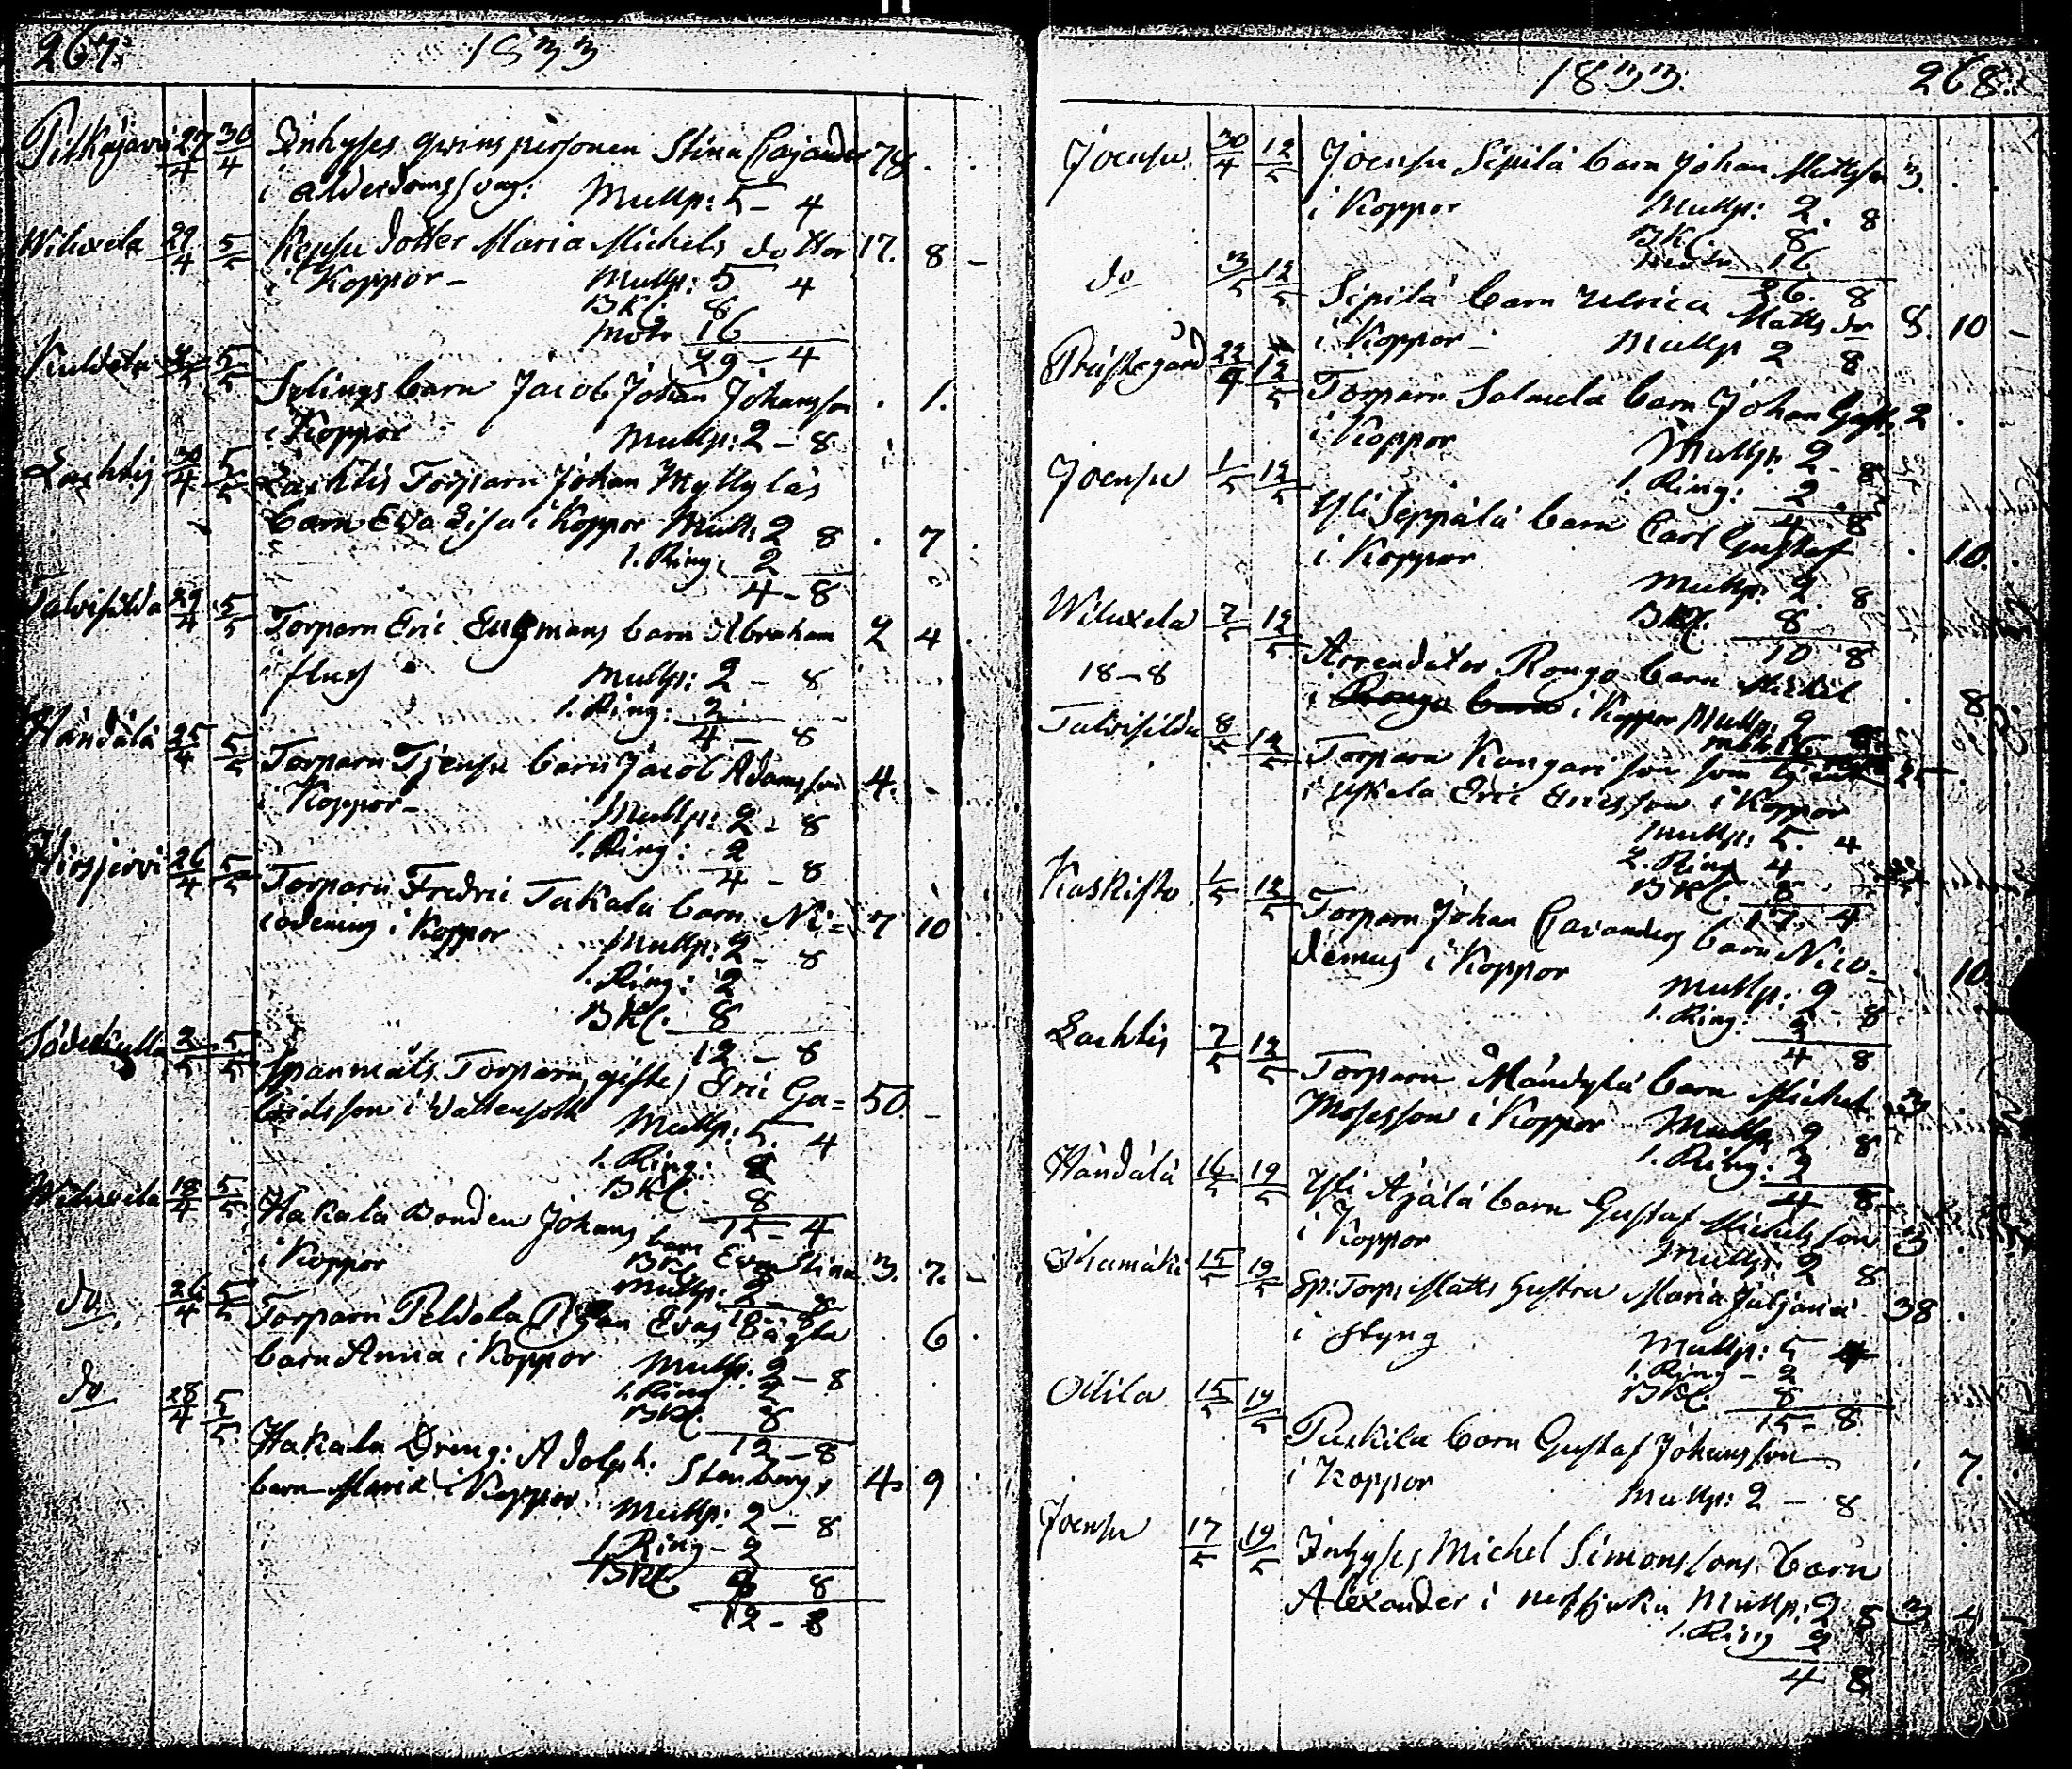 267.
1833
Pitkäjärvi 27/4 30/4 Inhyses qvinspersonen Stina Cajander 78. .
i ålderdomssvag: Mullp: 5 - 4
Wiluxela 29/4 5/5 Dotter Maria Michels dotter 17. 8 -
i Koppor - Mullp: 5 4
BKl. 8
Motr 16
29 - 4
5/5 barn Jacob Johan Johansson . 1.
i Koppor Mullp: 2 - 8
Lachtis 30/4 5/5 Lachtis Torparn Johan Myllyläs
barn Eva Lisa i Koppor Mull: 2 8 . 7
1. Ring: 2
4 - 8
Talvisilda 29/4 5/5 Torparn Eric Engmans barn Abraham 2 4
i fluss Mullp: 2 - 8
1. Ring: 2
4 - 8
Händälä 25/4 5/5 Torparn barn Jacob Adamsson 4. -
i Koppor - Mullp: 2 - 8
1. Ring: 2
4 - 8
Hirsjervi 26/4 5/5 Torparn Fredric Takala barn Ni= 7 10
codemus i Koppor Mullp: 2 - 8
1. Ring: 2
BKl. 8
12 - 8
Söderkulla 2/5 5/5 Spanmåls Torparn, gifte, Eric Ga= 50. -
i Vattensot Mullp: 5. 4
1. Ring: 2
BKl. 8
15 - 4
Wiluxela 18/4 5/5 Hakala Bonden Johans barn Eva Stina 3. 7. -
i Koppor BKl
Mullp: 2 - 8
do 26/4 5/5 Torparn Peldola Evas
barn Anna i Koppor Mullp. 2 - 8 . 6 .
1. Ring 2
BKl. 8
12 - 8
do 28/4 5/5 Hakala Dreng: Adolph: Stenbergs
barn Maria i Koppor Mullp: 2 - 8 4 9
1 Ring - 2
BKl. 8
12 - 8
1833. 268.
Joensu 30/4 12/5 Joensu Sipilä barn Johan Mattsson 3. .
i Koppor Mullp: 2. 8
BKl. 8
16
26. 8
do 3/5 12/5 Sipilä barn Ulrica Matts dr 8. 10 -
i Koppor - Mullp 2 8
Prästegård 22/4 12/5 Torparn Salmela barn Johan Gust. 2 .
i Koppor Mullp: 2 - 8
1. Ring: 2
4 8
Joensu 1/5 12/5 Yli Seppälä barn Carl Gustaf . 10.
i Koppor Mullp: 2 8
BKl. 8
10 8
Wiluxela 7/5 12/5 Arrendator Rongo barn Michel . 8
18 - 8 i Rongo barn i Koppor Mullp: 2 8
Talvisilda 8/5 12/5 Torparn Kangari son som tjent 25 .
i Uskela Eric Ericsson i Koppor
Mullp: 5. 4
2. Ring 4
BKl. 8
17. 4
Kaskisto 1/5 12/5 Torparn Johan Cavanders barn Nico= . 10
demus i Koppor Mullp: 2 - 8
1. Ring: 2
4 8
Lachtis 7/5 12/5 Torparn Mändylä barn Michel 3 .
Mosesson i Koppor Mullp 2 8
1. Ring: 2
4 8
Händälä 14/5 19/5 Yli Äjälä barn Gustaf Michelsson 3
i Koppor Mullp: 2 8
15/5 19/5 Sp: Torp: Matts hustru Maria Juljana 38 .
i styng Mullp: 5 4
1. Ring - 2
BKl. 8
15 - 8.
Oitila 15/5 19/5 Puxkila barn Gustaf Johansson . 7.
i Koppor Mullp: 2 - 8
Joensu 17/5 19/5 Inhyses Michel Simonssons barn
Alexander i Mullp: 2 8 3 4 -
1. Ring 2
4 8.